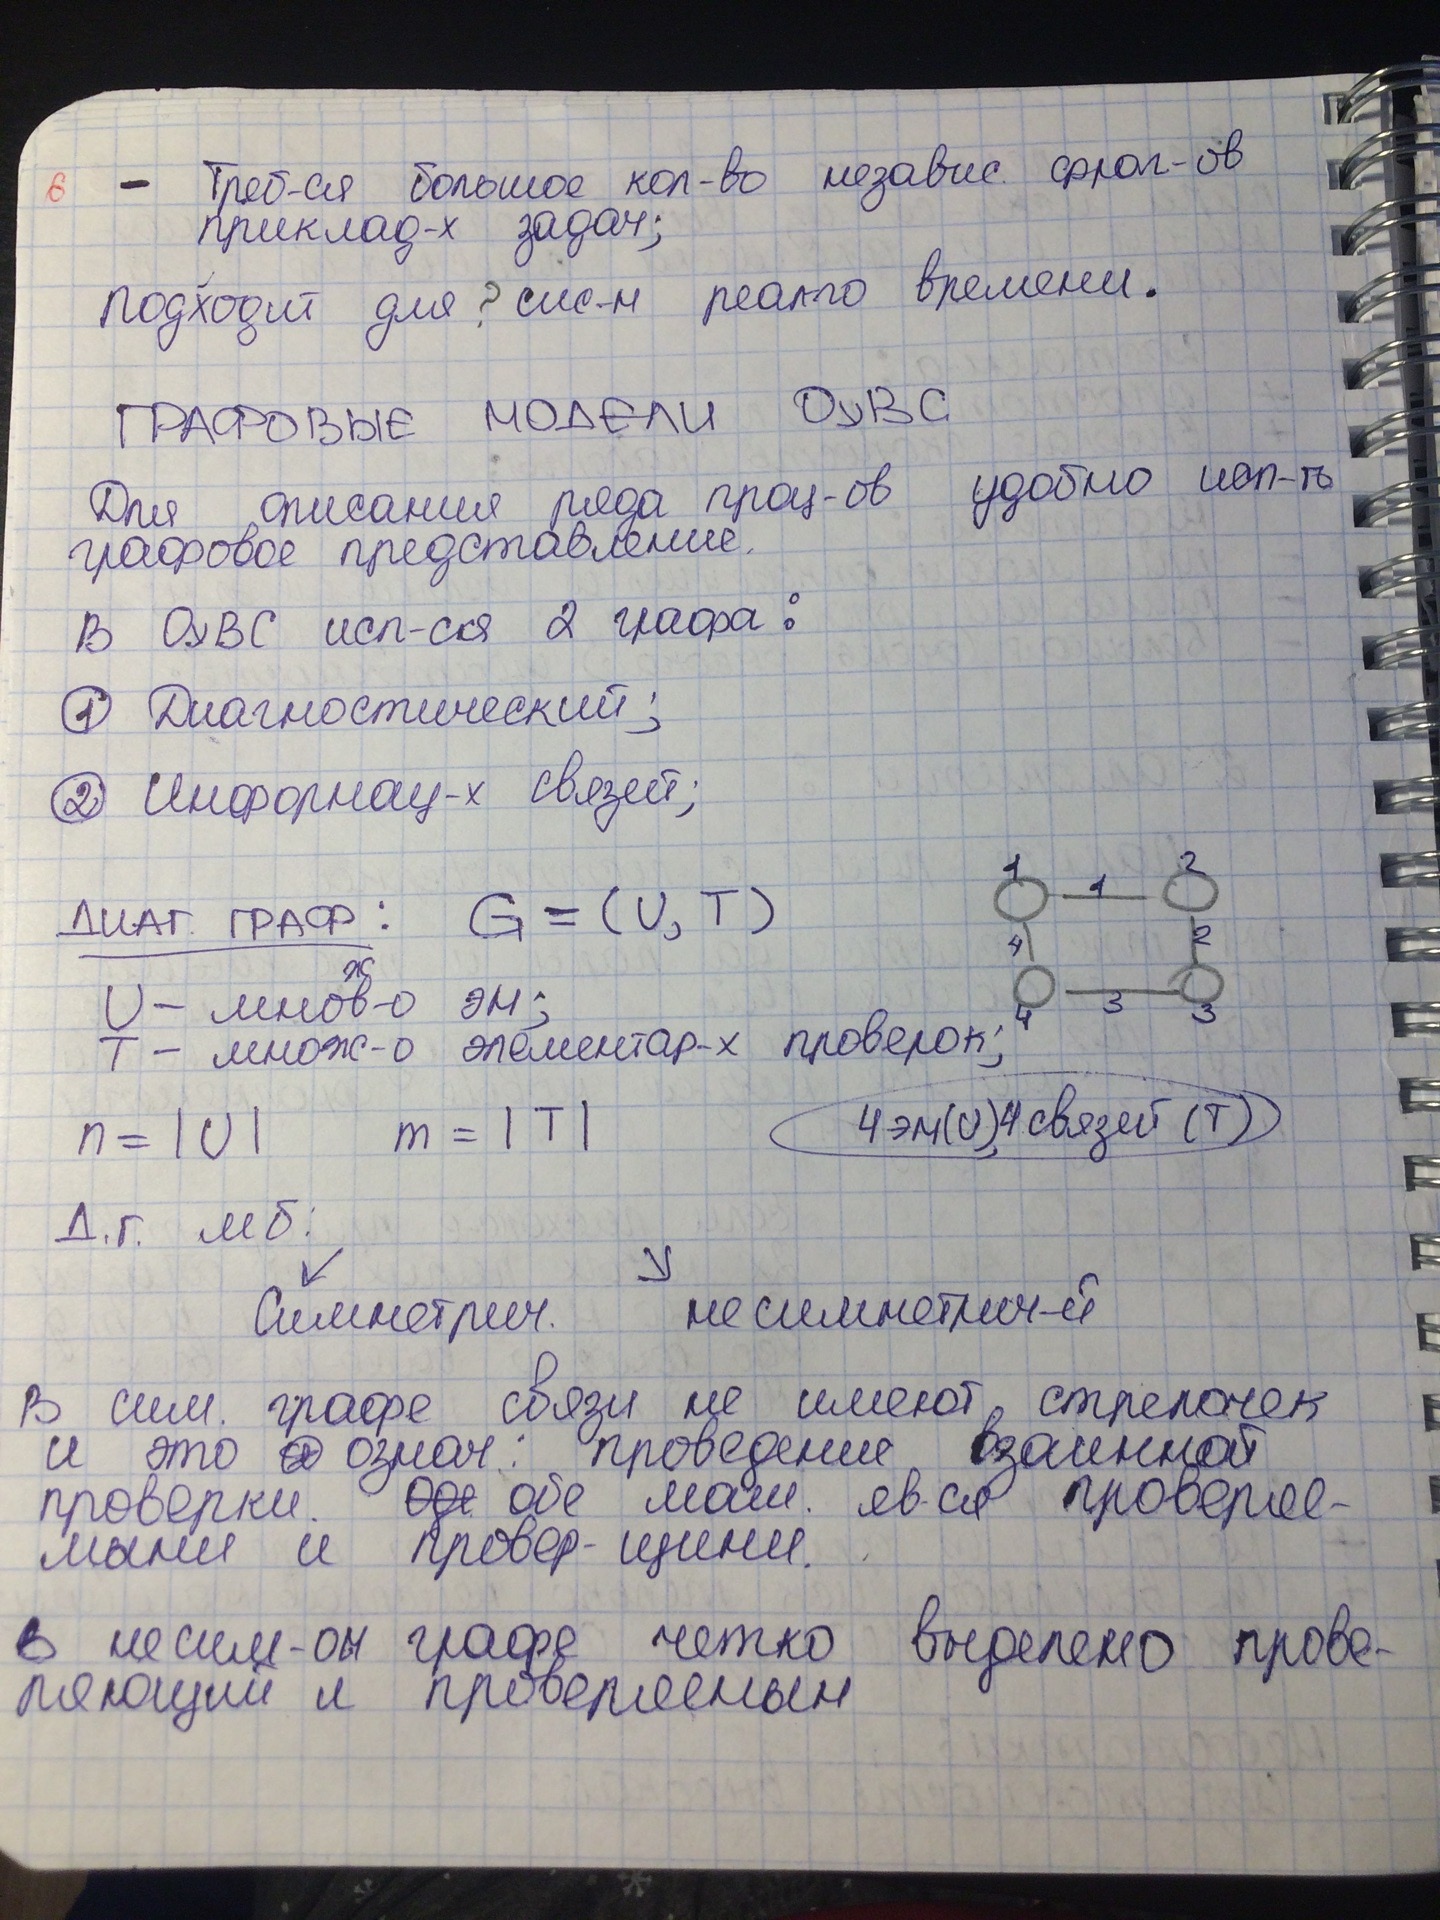 6 - Треб-ся большое кол-во независ. фраг-ов
приклад-х задач;
Подходит для ? сис-м реал-го времени.
ГРАФОВЫЕ МОДЕЛИ ОуВС
Для описания ряда проц-ов удобно исп-ть
графовое представление.
В ОуВС исп-ся 2 графа:
① Диагностический;
② Информац-х связей;
ДИАГ. ГРАФ: G = (U, T)
U - множ-о эм;
T - множ-о элементар-х проверок;
1 1 2
4 2
4 3 3
n = |U| m = |T|
4 эм(U), 4 связей (T)
Д.г. мб:
Симметрич. несимметрич-й
В сим. графе связи не имеют стрелочек
и это означ: проведение взаимной
проверки. обе маш. яв-ся проверяе-
мыми и провер-щими.
В несим-ом графе четко выделено прове-
ряющий и проверяемым